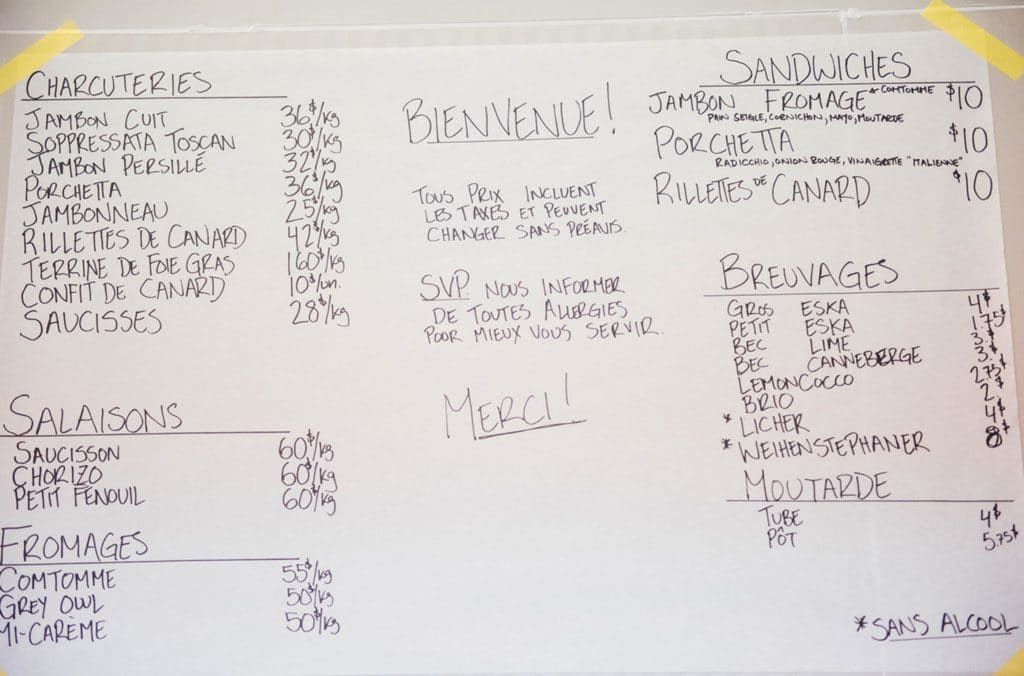 CHARCUTERIES
JAMBON CUIT 36$/kg
SOPPRESSATA TOSCAN 30$/kg
JAMBON PERSILLÉ 32$/kg
PORCHETTA 36$/kg
JAMBONNEAU 25$/kg
RILLETTES DE CANARD 42$/kg
TERRINE DE FOIE GRAS 160$/kg
CONFIT DE CANARD 10$/un.
SAUCISSES 28$/kg
SALAISONS
SAUCISSON 60$/kg
CHORIZO 60$/kg
PETIT FENOUIL 60$/kg
FROMAGES
COMTOMME 55$/kg
GREY OWL 50$/kg
MI-CARÈME 50$/kg
BIENVENUE!
TOUS PRIX INCLUENT
LES TAXES ET PEUVENT
CHANGER SANS PRÉAVIS.
SVP NOUS INFORMER
DE TOUTES ALLERGIES
POUR MIEUX VOUS SERVIR.
MERCI!
SANDWICHES
JAMBON FROMAGE COMTOMME $10
PAIN SEIGLE, CORNICHON, MAYO, MOUTARDE
PORCHETTA $10
RADICCHIO, ONION ROUGE, VINAIGRETTE "MALIENNE"
RILLETTES DE CANARD $10
BREUVAGES
GROS ESKA 4$
PETIT ESKA 1.75$
BEC LIME 3$
BEC CANNEBERGE 3$
LEMONCOCCO 2.75$
BRIO 2$
* LICHER 4$
* WEIHENSTEPHANER 8$
MOUTARDE
TUBE 4$
PÔT 5.75$
*SANS ALCOOL